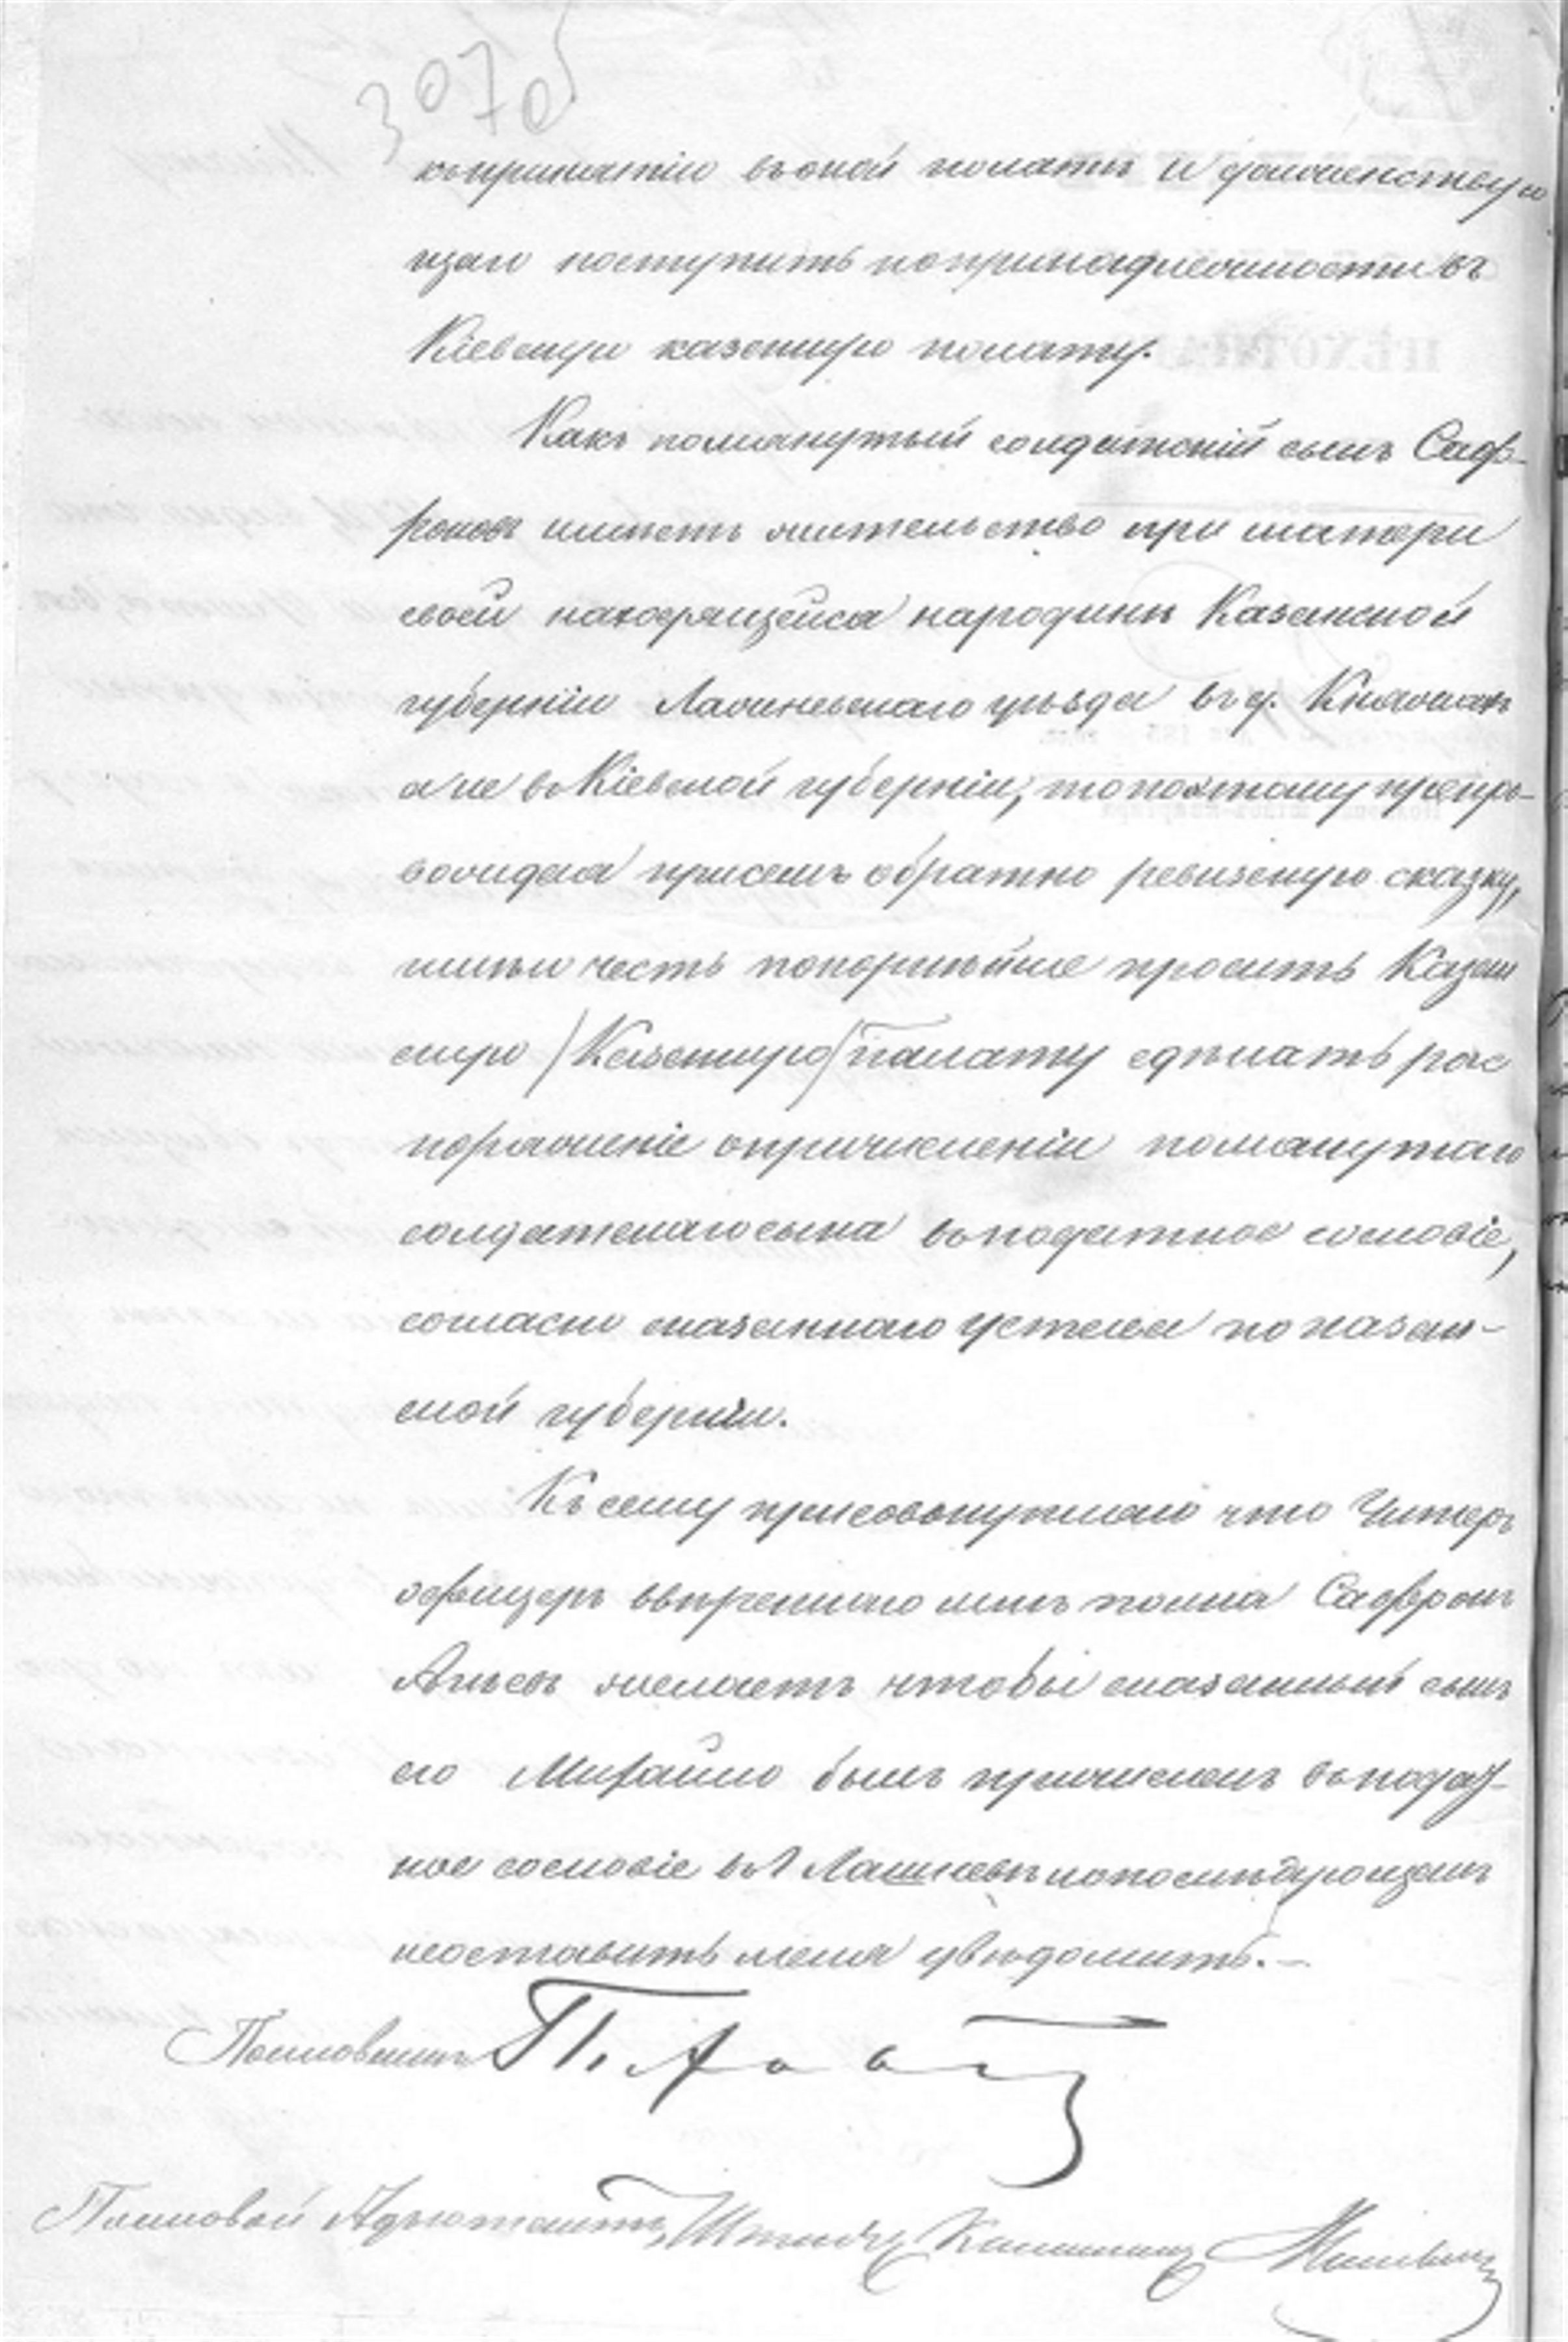 307 об
къ принятію въ оной полатѣ и долженствую
щаго поступить по принадлежности въ
Кіевскую казенную полату.
Какъ помянутый солдатскій сынъ Саф-
роновъ имѣетъ жительство при матери
своей находящейся на родинѣ Казанской
губерніи Лаишевскаго уѣзда въ д.
а не въ Кіевской губерніи, то поэтому препро-
вождая при семъ обратно ревизскую сказку,
имѣю честь покорнѣйше просить Казан
скую /Казенную/ палату сдѣлать рас
поряженіе о причисленіи помянутаго
солдатскаго сына въ податное сословіе,
согласно сказаннаго устава по казан-
ской губерніи.
Къ сему присовокупляю что Унтеръ
офицеръ ввѣреннаго мнѣ полка Сафронъ
желаетъ чтобы сказанный сынъ
его Михайло былъ причисленъ въ подат-
ное сословіе въ г. Лаишевѣ и о послѣдующемъ
неоставить меня увѣдомить. —
Полковникъ
Полковой Адъютантъ, Штабсъ Капитанъ